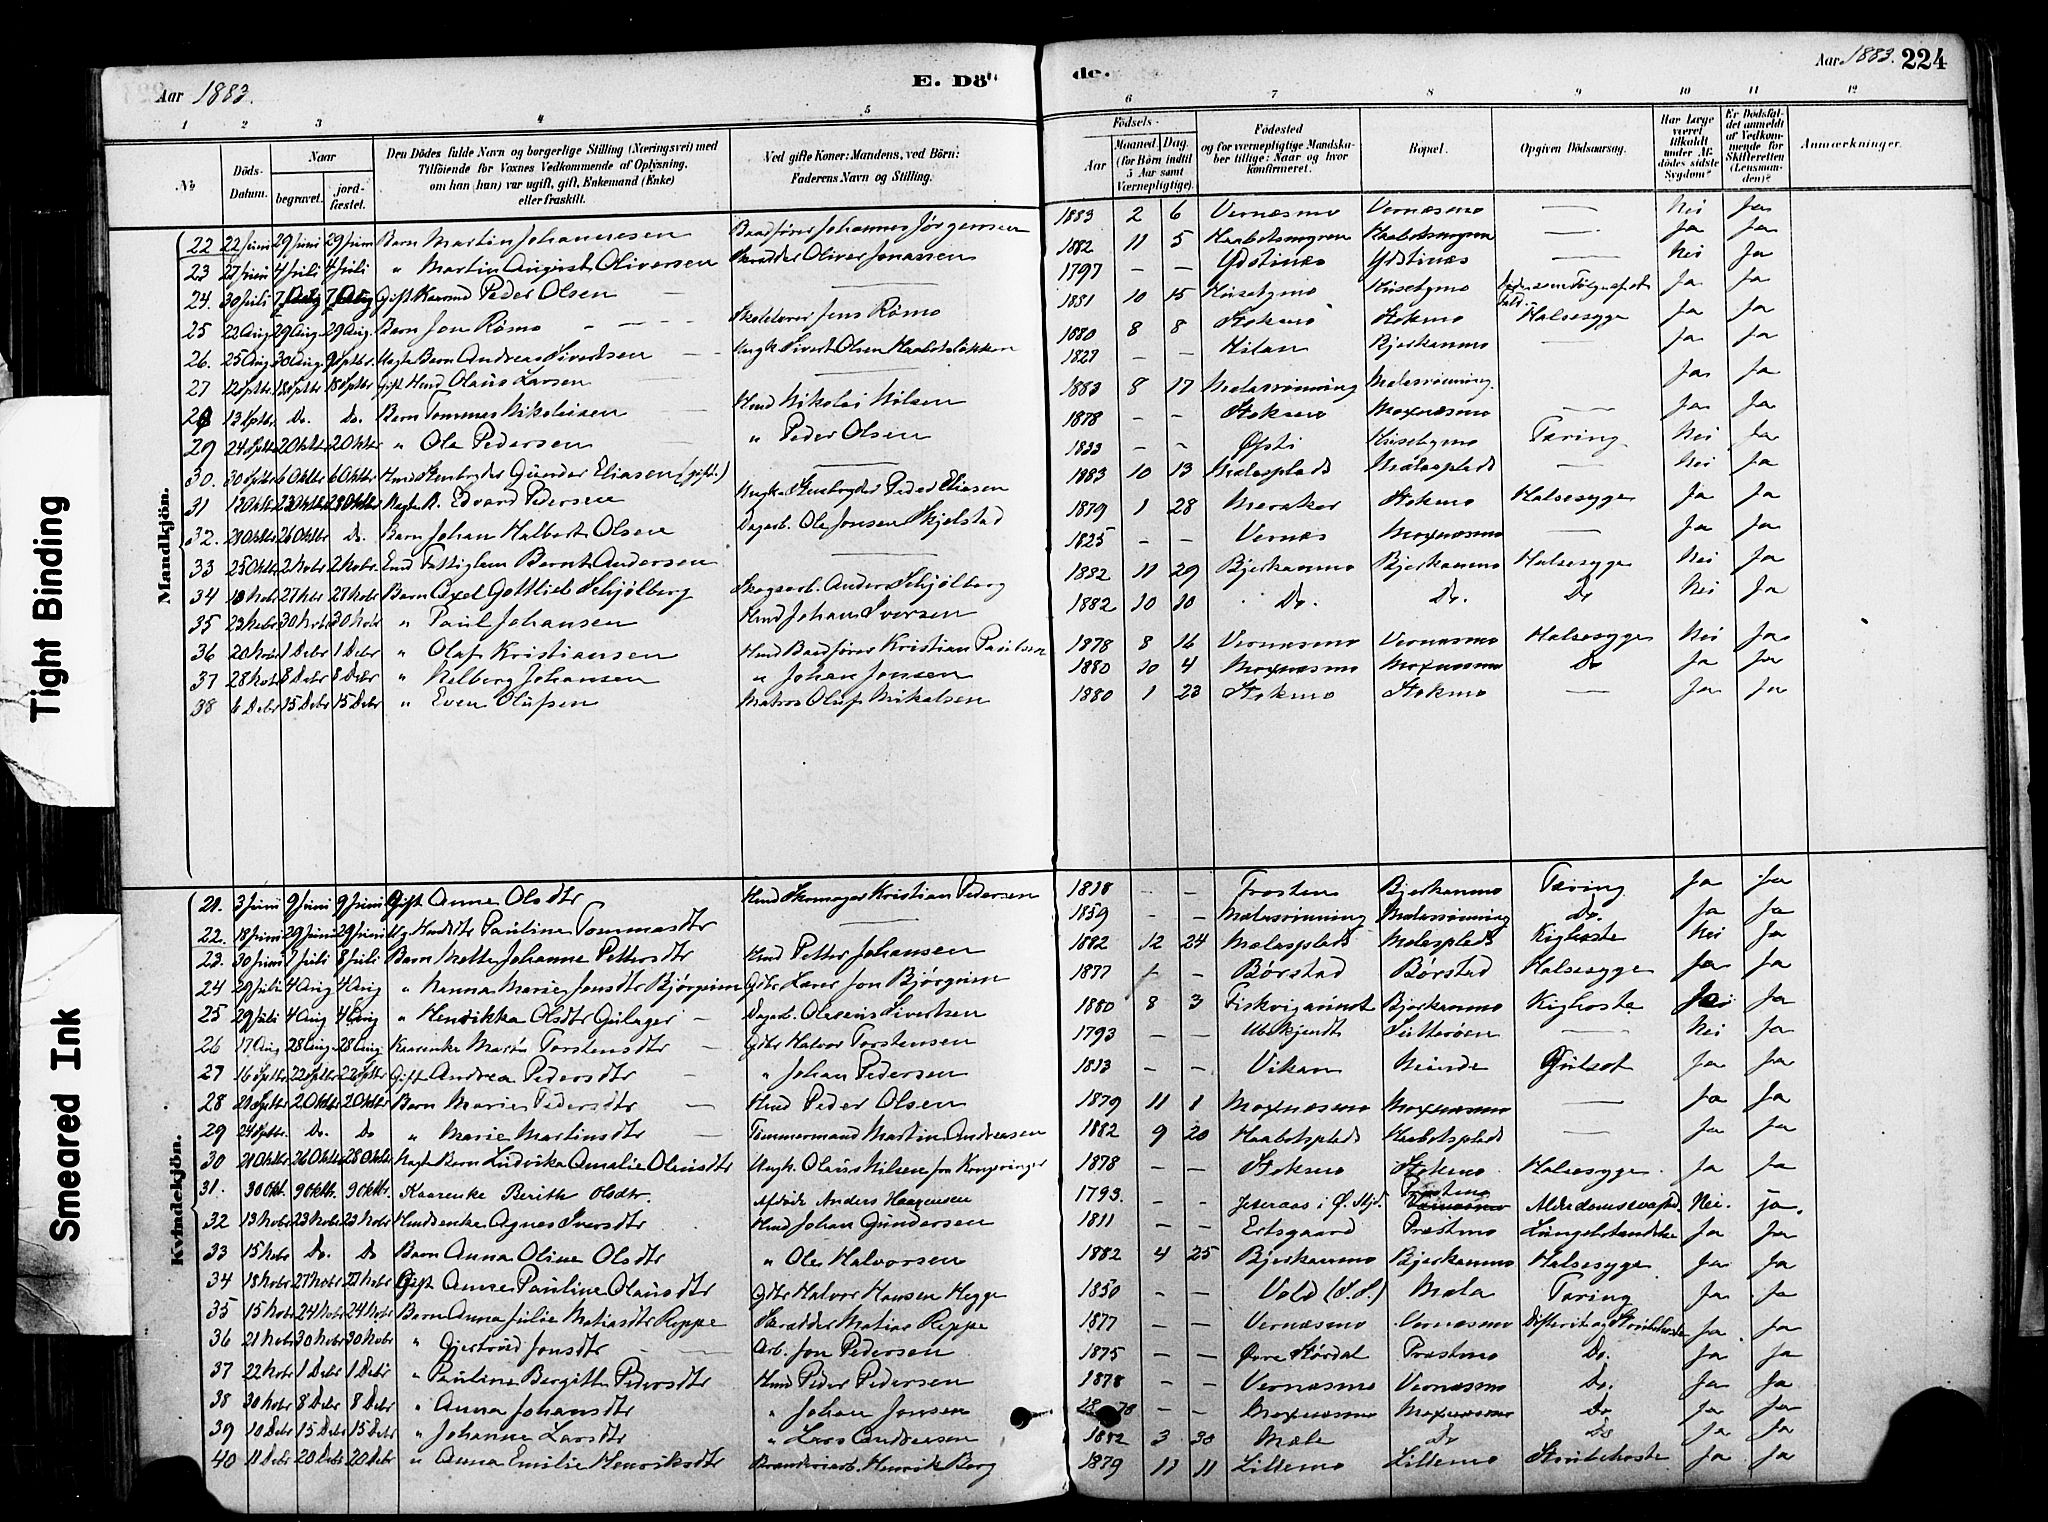 Aar 1883. E. Dö-
de. Aar 1883. 224
1 2 3 4 5 6 7 8 9 10 11 12
No
Döds-Datum.
Naar
begravet.
jord-fæstet.
Den Dödes fulde Navn og borgerlige Stilling (Næringsvei) med
Tilföiende for Voxnes Vedkommende af Oplysning,
om han (hun) var ugift, gift, Enkemand (Enke)
eller fraskilt.
Ved gifte Koner: Mandens, ved Börn:
Faderens Navn og Stilling.
Födsels-
Aar
Maaned. Dag.
(for Börn indtil
5 Aar samt
Værnepligtige).
Födested
og for værnepligtige Mandska-
ber tillige: Naar og hvor
konfirmeret.
Bopæl.
Opgiven Dödsaarsag.
Har Læge
været
tilkaldt
under Af-
dödes sidste
Sygdom?
Er Dödsfal-
det anmeldt
af Vedkom-
mende for
Skifteretten
(Lensman-
den)?
Anmærkninger.
Mandkjön.
22 22 Juni 29 Juni 29 Juni Barn Martin Johannesen Baadfører Johannes Jørgensen 1883 2 6 Vernæsmo Vernæsmo — Nei Ja
23 27 Juni 4 Juli 4 Juli " Martin August Oliversen Skrædder Oliver Jonassen 1882 11 5 Haabetsmyren Haabetsmyren — Ja Ja
24. 30 Juli 7 Aug 7 Aug Gift Kaarmd Peder Olsen — 1797 — — Ydstinæs Ydstinæs Nei Ja
25 22 Aug 29 Aug 29 Aug. Barn Jon Rømo Skolelærer Jens Rømo 1881 10 15 Husebymo Husebymo Ja Ja
26. 25 Aug 30 Aug. 9 Sptbr. Uægte Barn Andreas Sivertsen Ungk Sivert Olsen Haabetsløkken 1880 8 8 Stokmo Stokmo Halsesyge Ja Ja
27 12 Sptbr 18 Sptbr 18 Sptbr Gift Hmd Olaus Larsen — 1827 — — Hilan Bjerkanmo — Ja Ja
28 13 Sptbr. Do. Do. Barn Tommas Nikolaisen Hmd Nikolai Nilsen 1883 8 17 Mælasrønning Mælasrønning. Ja Ja
29 24 Sptbr 2 Oktbr 2 Oktbr " Ole Pedersen " Peder Olsen 1878 — — Stokmo Moxnæsmo — Ja Ja
30. 30 Sptbr 6 Oktbr 6 Oktbr Hmd Stenbryder Gunder Eliasen (gift.) — 1833 — — Øfsti Husebymo Tæring. Nei Ja
31 13 Oktbr 23 Oktbr 28 Oktbr Uægte B. Edvard Pedersen Ungk Stenbryder Peder Eliasen 1883 10 13 Mælasplads Mælasplads — Nei Ja
32. 21 Oktbr 26 Oktbr Do. Barn Johan Halbert Olsen Dagarb. Ole Jonsen Skjelstad 1879 1 28 Meraker Stokmo Halsesyge Ja Ja
33 25 Oktbr 2 Nobr. 2 Nobr. Emd Fattiglem Bernt Andersen — 1825 — — Vernæs Moxnæsmo — Ja Ja
34 18 Nobr 27 Nbr 27 Nobr Barn Axel Gottlieb Schjølberg Skogsarb. Anders Schjølberg 1882 11 29 Bjerkanmo Bjerkanmo Halsesyge Nei Ja
35 23 Nobr 30 Nobr 30 Nobr " Paul Johansen Hmd Johan Iversen 1882 10 10 Do. Do. Do Nei Ja
36 20 Nobr 1 Debr 1 Debr " Olaf Kristiansen Hmd Baadfører Kristian Paulsen 1878 8 16 Vernæsmo Vernæsmo Halsesyge Nei Ja
37 28 Nobr 8 Debr 8 Debr " Helberg Johansen " Johan Jonsen 1880 10 4 Moxnæsmo Moxnæsmo Do Ja Ja
38 6 Debr 15 Debr 15 Debr " Even Olufsen Matros Oluf Mikalsen 1880 1 23 Stokmo Stokmo — Ja Ja
Kvindekjön.
21. 3 Juni 9 Juni 9 Juni Gift Anne Olsdtr Hmd Skomager Kristian Pedersen 1818 — — Frosten Bjerkanmo Tæring Ja Ja
22. 18 Juni 29 Juni 29 Juni Ug. Hmdsdtr Pauline Tommasdtr — 1859 — — Mælasrønning Mælasrønning Do. Ja Ja
23. 30 Juni 7 Juli 8 Juli Barn Mette Johanne Pettersdtr Hmd Petter Johansen 1882 12 24 Mælasplads Mælasplads Kighoste Nei Ja
24 29 Juli 4 Aug 4 Aug " Nanna Marie Jonsdtr Bjørgum Gdbr Lærer Jon Bjørgum 1877 — Børstad Børstad Halsesyge Ja Ja
25 29 Juli 4 Aug 4 Aug " Henrikka Olsdtr Gulager Dagarb. Olesens Sivertsen 1880 8 3 Fiskvigaundet Bjerkanmo Kighoste Ja
26 17 Aug 28 Aug. 28 Aug Kaarenke Marit Torstensdtr Gdbr Halvor Torstensen 1793 — — Utskjendt Sutterøen — Nei Ja
27 16 Sptbr 22 Sptbr 22 Sptbr Gift Andrea Pedersdtr " Johan Pedersen 1813 — — Vikan Gulsot Ja Ja
28 20 Sptbr 2 Oktbr 2 Oktbr Barn Marie Pedersdtr Hmd Peder Olsen 1879 11 1 Moxnæsmo Moxnæsmo — Ja Ja
29 24 Sptbr. Do. Do " Marie Martinsdtr Tømmermand Martin Andreasen 1882 9 20 Haabetsplads Haabetsplads — Ja Ja
30 21 Oktbr 26 Oktbr 28 Oktbr Uægte Barn Ludvika Amalie Olausdtr Ungk. Olaus Nilsen fra Kongsvinger 1878 — — Stokmo Stokmo Halsesyge Ja Ja
31. 30 Okt. 9 Nobr. 9 Nobr. Kaarenke Berith Olsdtr. Afdøde Anders Haagensen 1793. — — Jeteraas i Ø. Stjd. Præstmo Alderdomssvaghd. Nei. Ja.
32 13 Nobr 23 Nobr 23 Nobr Hmdsenke Agnes Iversdtr Hmd Johan Gundersen 1811 — — Ertsgaard Præstmo Lungebetændelse Ja Ja
33 15 Nobr Do. Do Barn Anna Oline Olsdtr " Ole Halvorsen 1882 4 25 Bjerkanmo Bjerkanmo Halsesyge Ja Ja
34 18 Nobr 27 Nobr 27 Nobr Gift Anne Pauline Olausdtr Gdbr Halvor Hansen Hegge 1850 — — Vold (S.S.) Mæla Tæring Ja Ja
35 15 Nobr 24 Nobr 24 Nobr Barn Anna Julie Mathiasdtr Reppe Skrædder Matias Reppe 1877 — — Vernæsmo Vernæsmo Difterit og Strubehoste Ja Ja
36 21 Nobr 30 Nobr 30 Nobr " Gjertrud Jonsdtr Arb. Jon Pedersen 1875 — — Øvre Størdal Præstmo Do. Ja Ja
37 22 Nobr 1 Debr 1 Debr " Pauline Bergitte Pedersdtr Hmd Peder Pedersen 1878 — — Vernæsmo Vernæsmo Do. Ja Ja
38 30 Nobr 8 Debr 8 Debr " Anna Johansdtr " Johan Jonsen Moxnæsmo Moxnæsmo Do Ja Ja
39 10 Debr 15 Debr 15 Debr " Johanne Larsdtr " Lars Andreasen 1882 3 30 Mæle Do Do Ja Ja
40 11 Debr 20 Debr 20 Debr " Anna Emilie Henriksdtr Brænderiarb. Henrik Berg 1879 11 11 Lillemo Lillemo Strubehoste Ja Ja
Tight Binding
Smeared Ink